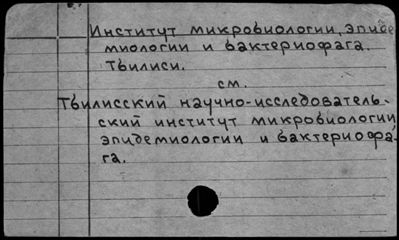 Институт микробиологии, эпиде
миологии и бактериофага.
Тбилиси.
см.
Тбилисский научно-исследователь-
ский институт микробиологии,
эпидемиологии и бактериофа-
га.